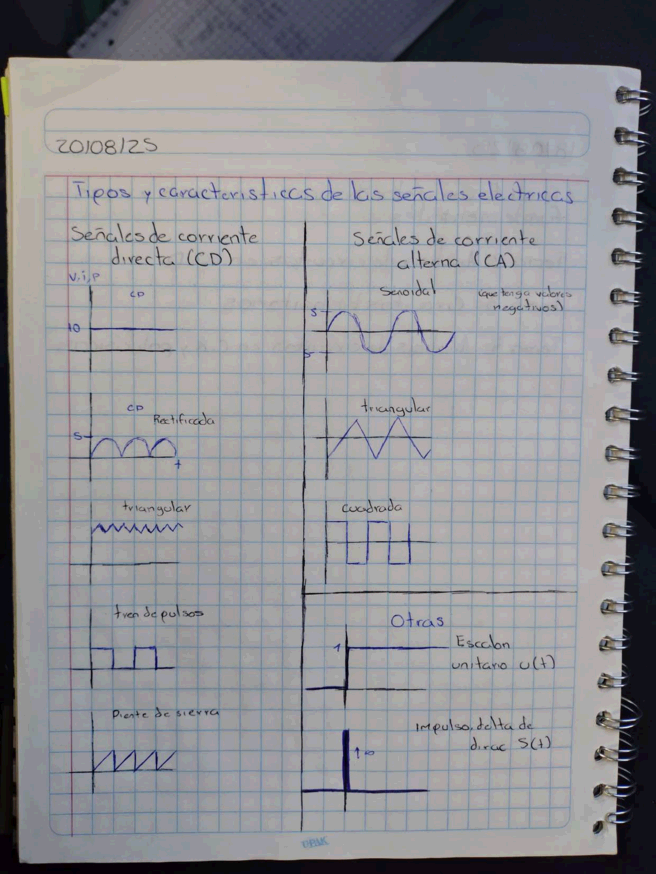 20/08/25
Tipos y caracteristicas de las señales electricas
Señales de corriente
directa (CD)
V,i,P
CD
10
CD
Rectificada
5
t
triangular
tren de pulsos
Diente de sierra
Señales de corriente
alterna (CA)
Senoidal
(que tenga valores
negativos)
5
5
triangular
cuadrada
Otras
1
Escalon
unitario u(t)
Impulso, delta de
dirac S(t)
↑∞